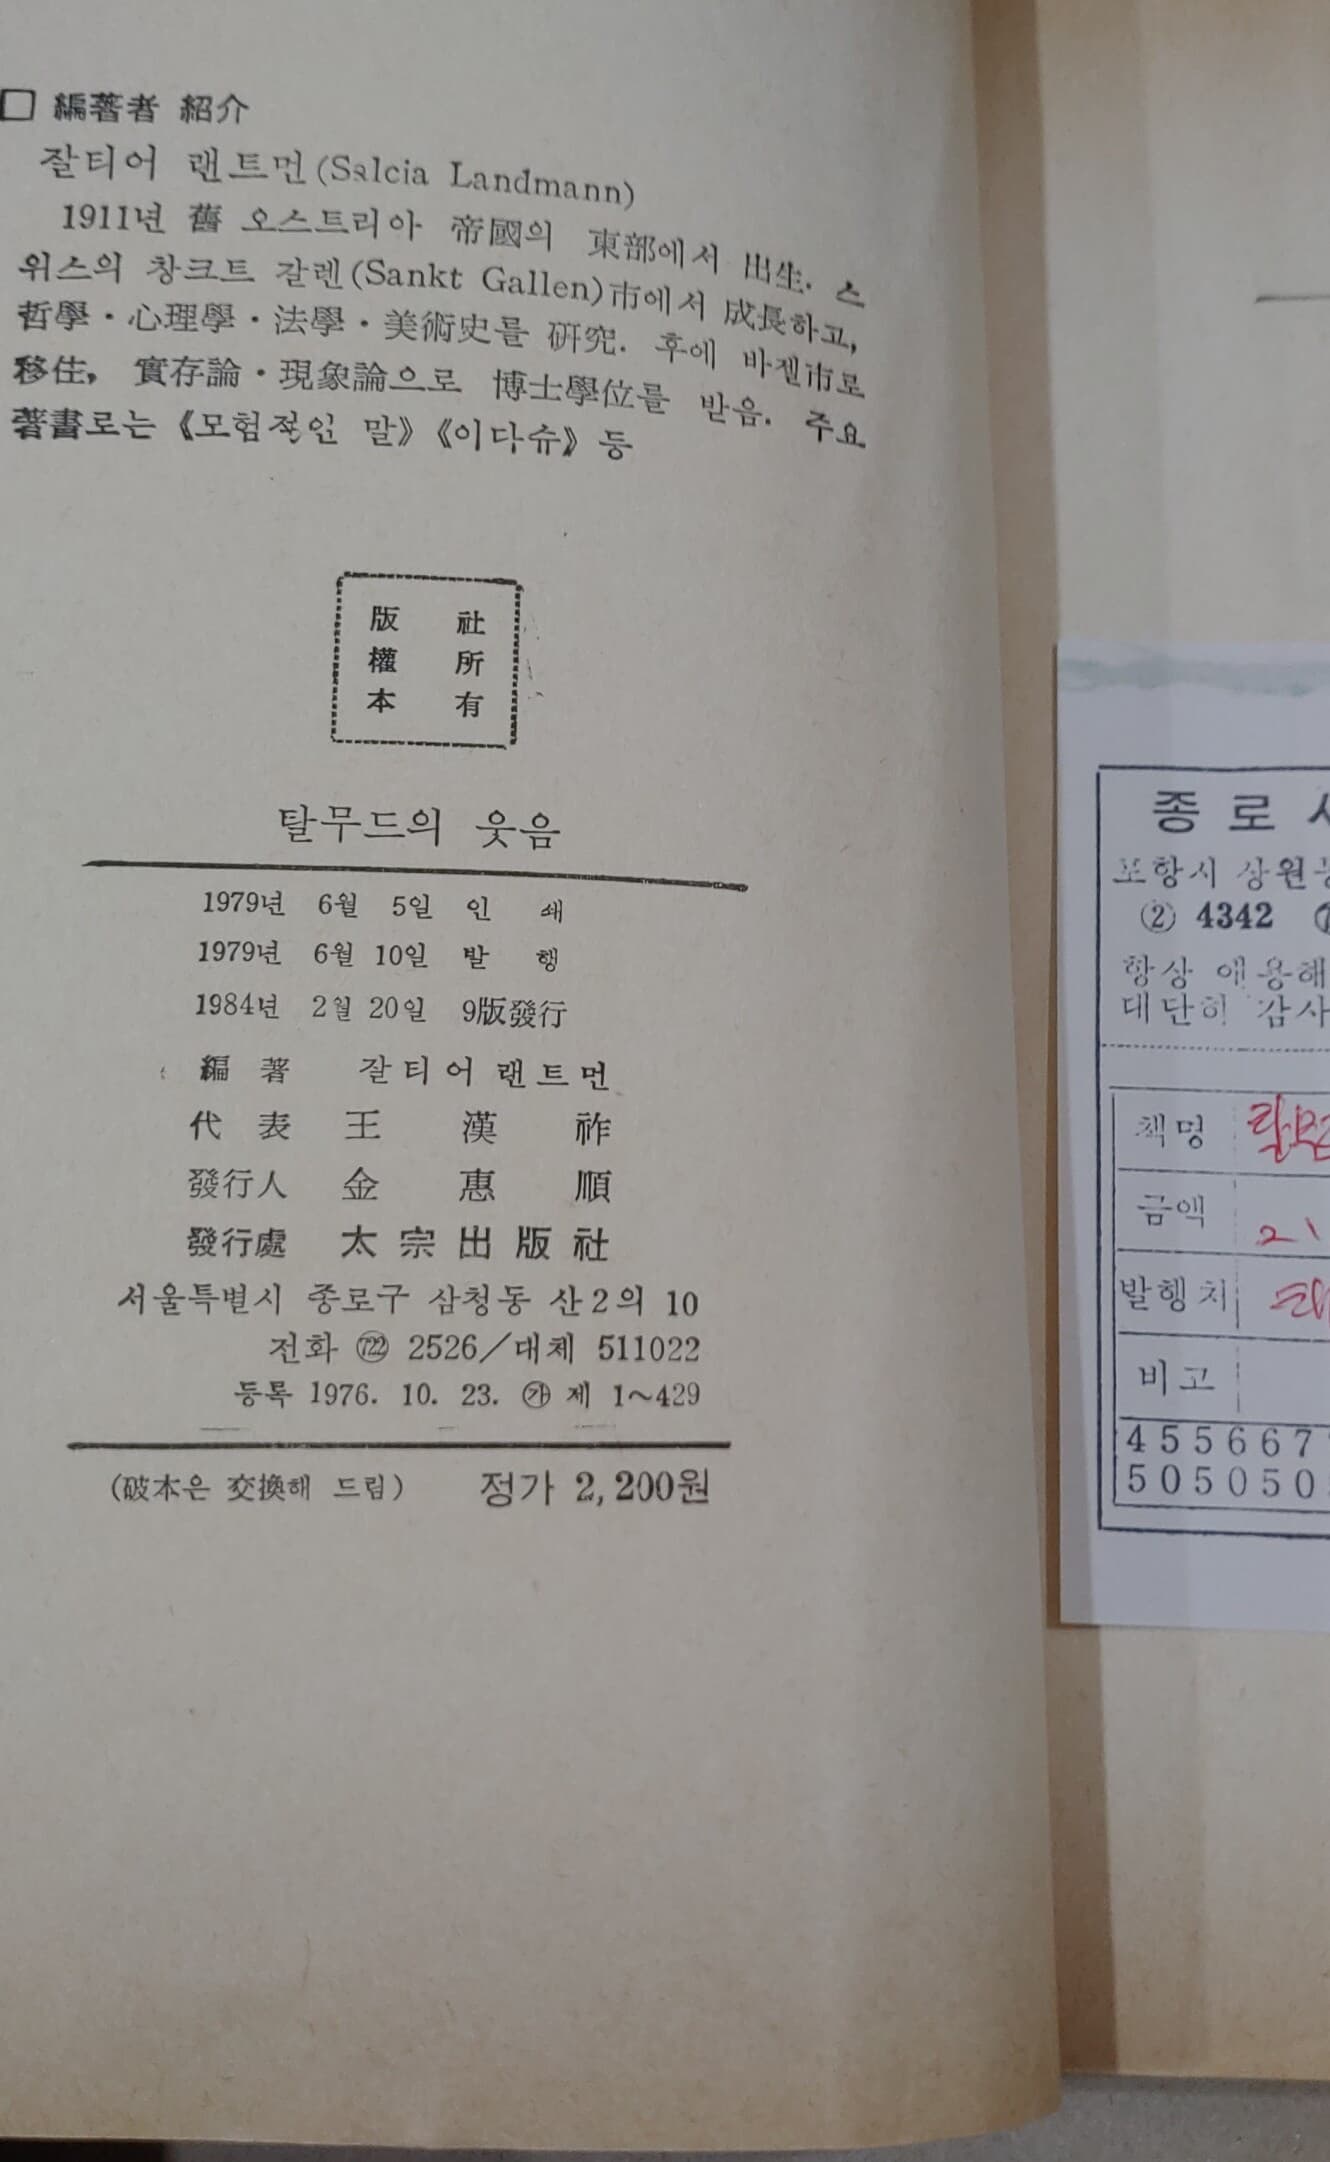 □ 編著者 紹介
잘티어 랜트먼(Salcia Landmann)
1911년 舊 오스트리아 帝國의 東部에서 出生. 스
위스의 창크트 갈렌(Sankt Gallen)市에서 成長하고,
哲學·心理學·法學·美術史를 硏究. 후에 바젤市로
移住, 實存論·現象論으로 博士學位를 받음. 주요
著書로는《모험적인 말》《이다슈》등
版 社
權 所
本 有
탈무드의 웃음
1979년 6월 5일 인 쇄
1979년 6월 10일 발 행
1984년 2월 20일 9版發行
編 著 잘티어랜트먼
代 表 王 漢 祚
發行人 金 惠 順
發行處 太宗出版社
서울특별시 종로구 삼청동 산2의 10
전화 ㉦ 2526/대체 511022
등록 1976. 10. 23. ㉮ 제 1~429
(破本은 交換해 드림) 정가 2,200원
종로
포항시 상원
② 4342
항상 애용해
대단히 감사
책명
금액
발행처
비고
4 5 5 6 6 7
5 0 5 0 5 0